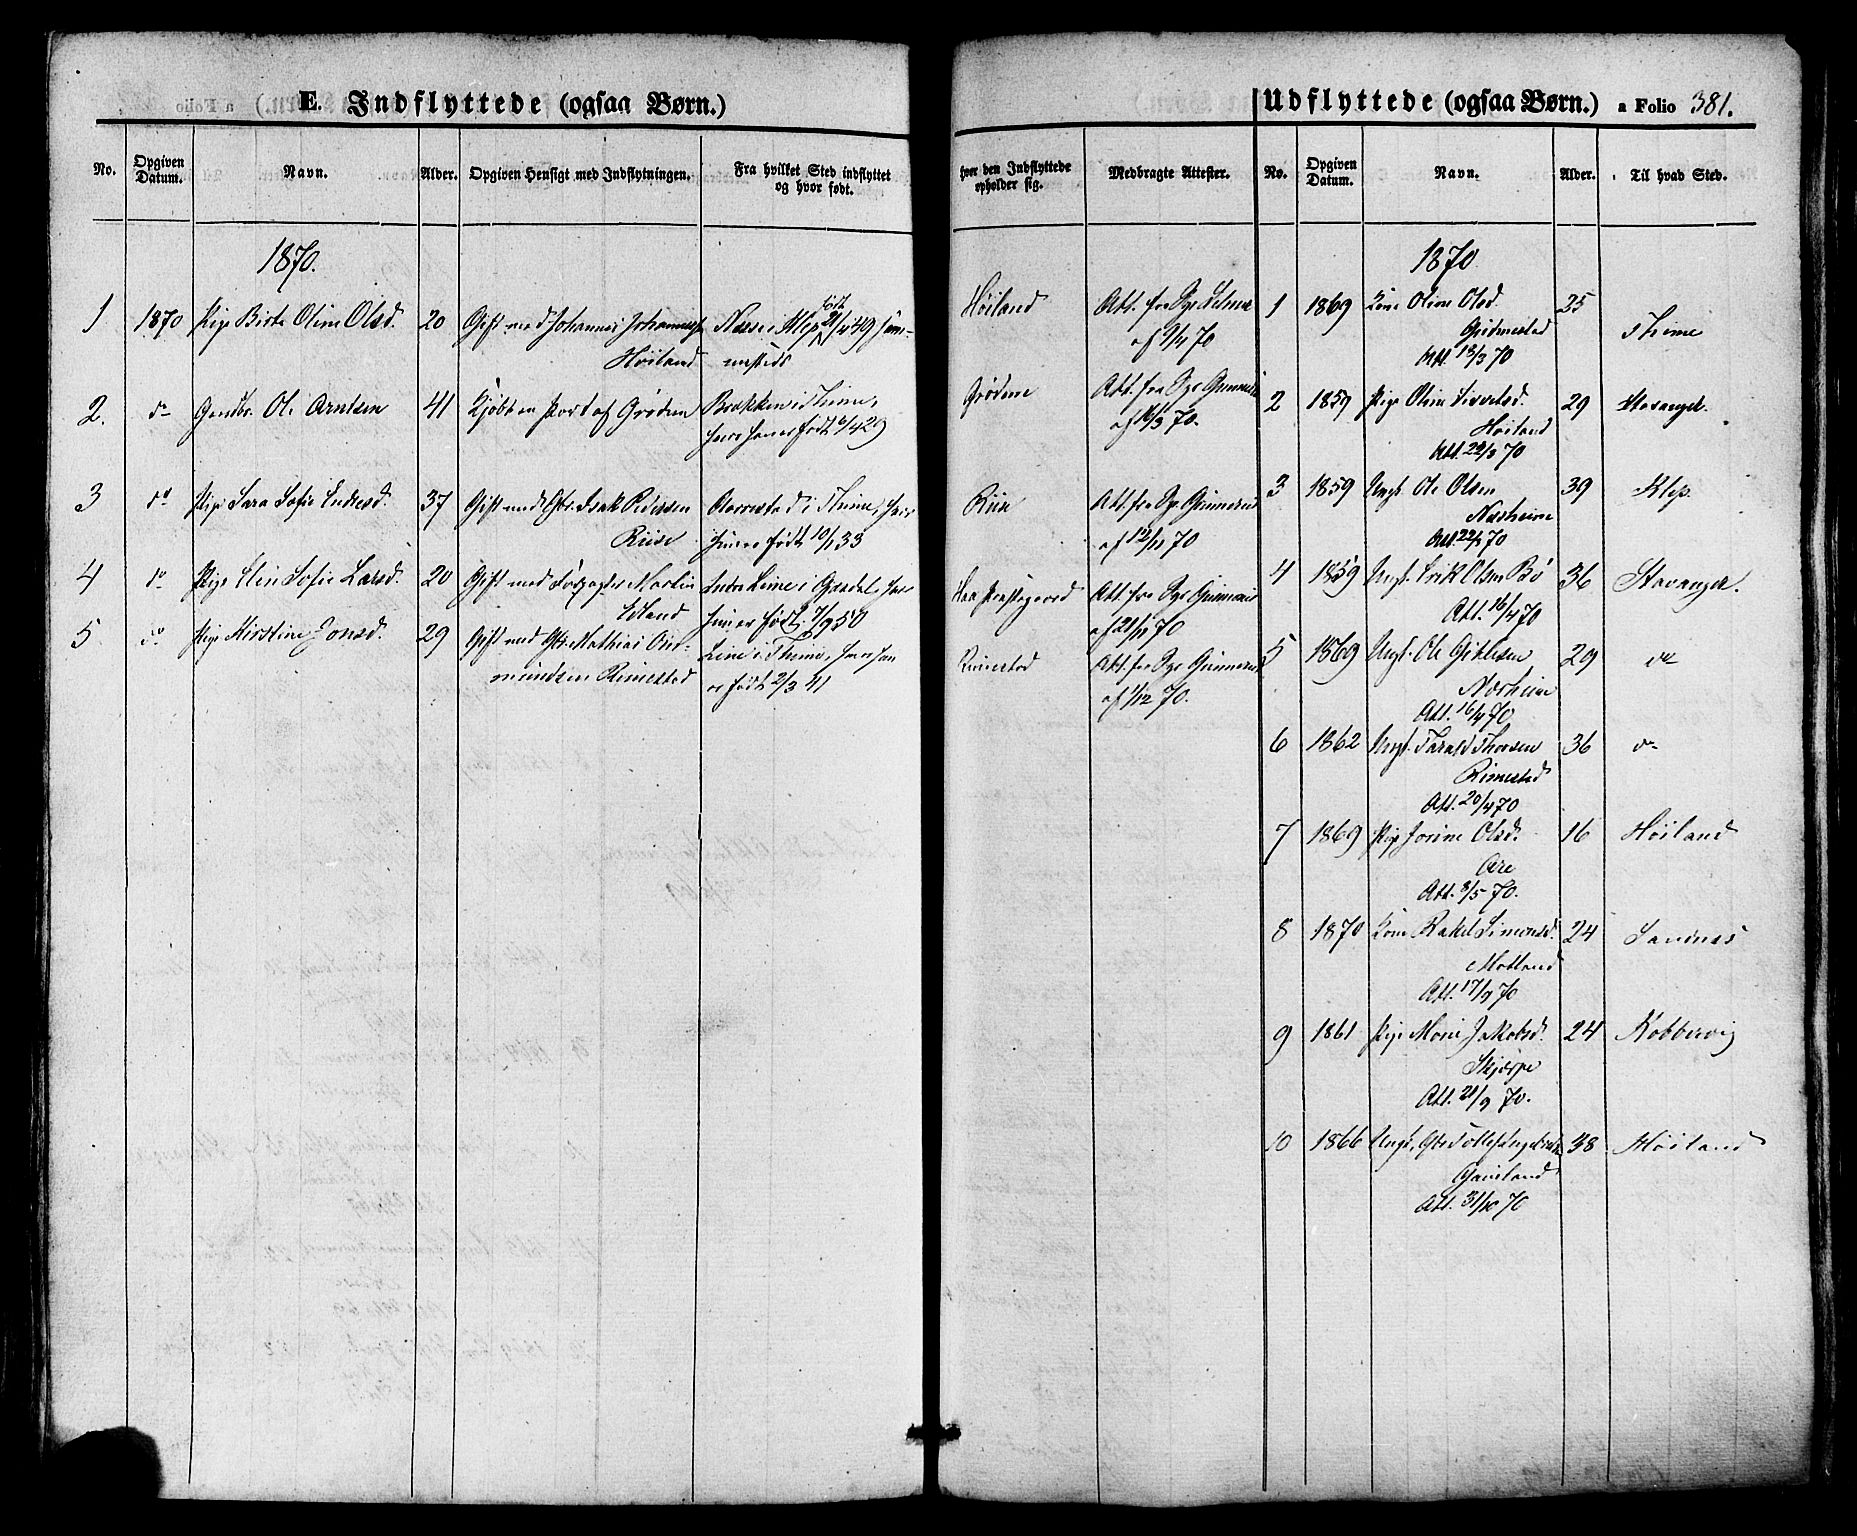 E. Indflyttede (ogsaa Børn.)
No.
Opgiven Datum.
Navn.
Alder.
Opgiven Hensigt med Indflytningen.
Fra hvilket Sted indflyttet
og hvor født.
1870.
1 1870 Pige Birte Oline Olsd. 20 Gift med Johannes Johannes
Høiland
født
i Klep 21/4 49
2. do Gaardbr. Ole Arntsen 41 Kjøbt en Part af Grødem Brækken i Thime,
født 6/4 29
3 do Pige Sara Sofie Endresd. 37 Gift med Gbr. Isak Pedersen i Thime,
Riise født 10/1 33
4 do Pige Elin Sofie Larsd. 20 Gift med Martin Indre Leine i Gjesdal,
født 7/9 50
5 do Pige Kirstine Jonsd. 29 Gift med Gbr. Mathias Om- Line i Thime,
mundsen Rimestad er født 2/3 41
Udflyttede (ogsaa Børn.) a Folio 381.
hvor den Indflyttede
opholder sig.
Medbragte Attester.
No.
Opgiven
Datum.
Navn.
Alder.
Til hvad Sted.
1870
Høiland Att. fra Sgp.
70
Grødem Att. fra Sgp. Gunnerus
af 16/3 70.
Riise Att. fra Sgp. Gunnerus
af 12/11 70
Haa Præstegaard Att. fra Sgp. Gunnerus
af 21/11 70
Rimestad Att. fra Sgp. Gunnerus
af 1/12 70.
1 1869 Kone Oline Olsd. 25 Thime
Att. 18/3 70
2 1859 Pige Oline Sivertsd. 29 Stavanger.
Høiland
Att. 22/3 70
3 1859 Ungk. Ole Olsen 39 Klep.
Nærheim
Att. 22/3 70
4 1859 Ungk. Erik Olsen Bø 36 Stavanger.
Att. 16/4 70
5 1869 Ungk. Ole Gitlesen 29 do
Nærheim
Att. 16/4 70
6 1862 Ungk. Tarald Thorsen 36 do
Rimestad
Att. 20/4 70
7 1869 Pige Josine Olsd. 16 Høiland
Are
Att. 3/5 70.
8 1870 Kone Rakel Simonsd. 24 Sandnes
Motland
Att. 17/9 70
9 1861 Pige Marie Jakobsd. 24 Kobbervig
Skjærpe
Att. 21/9 70.
10 1866 Ungk. 38 Høiland
Gausland
Att. 31/10 70